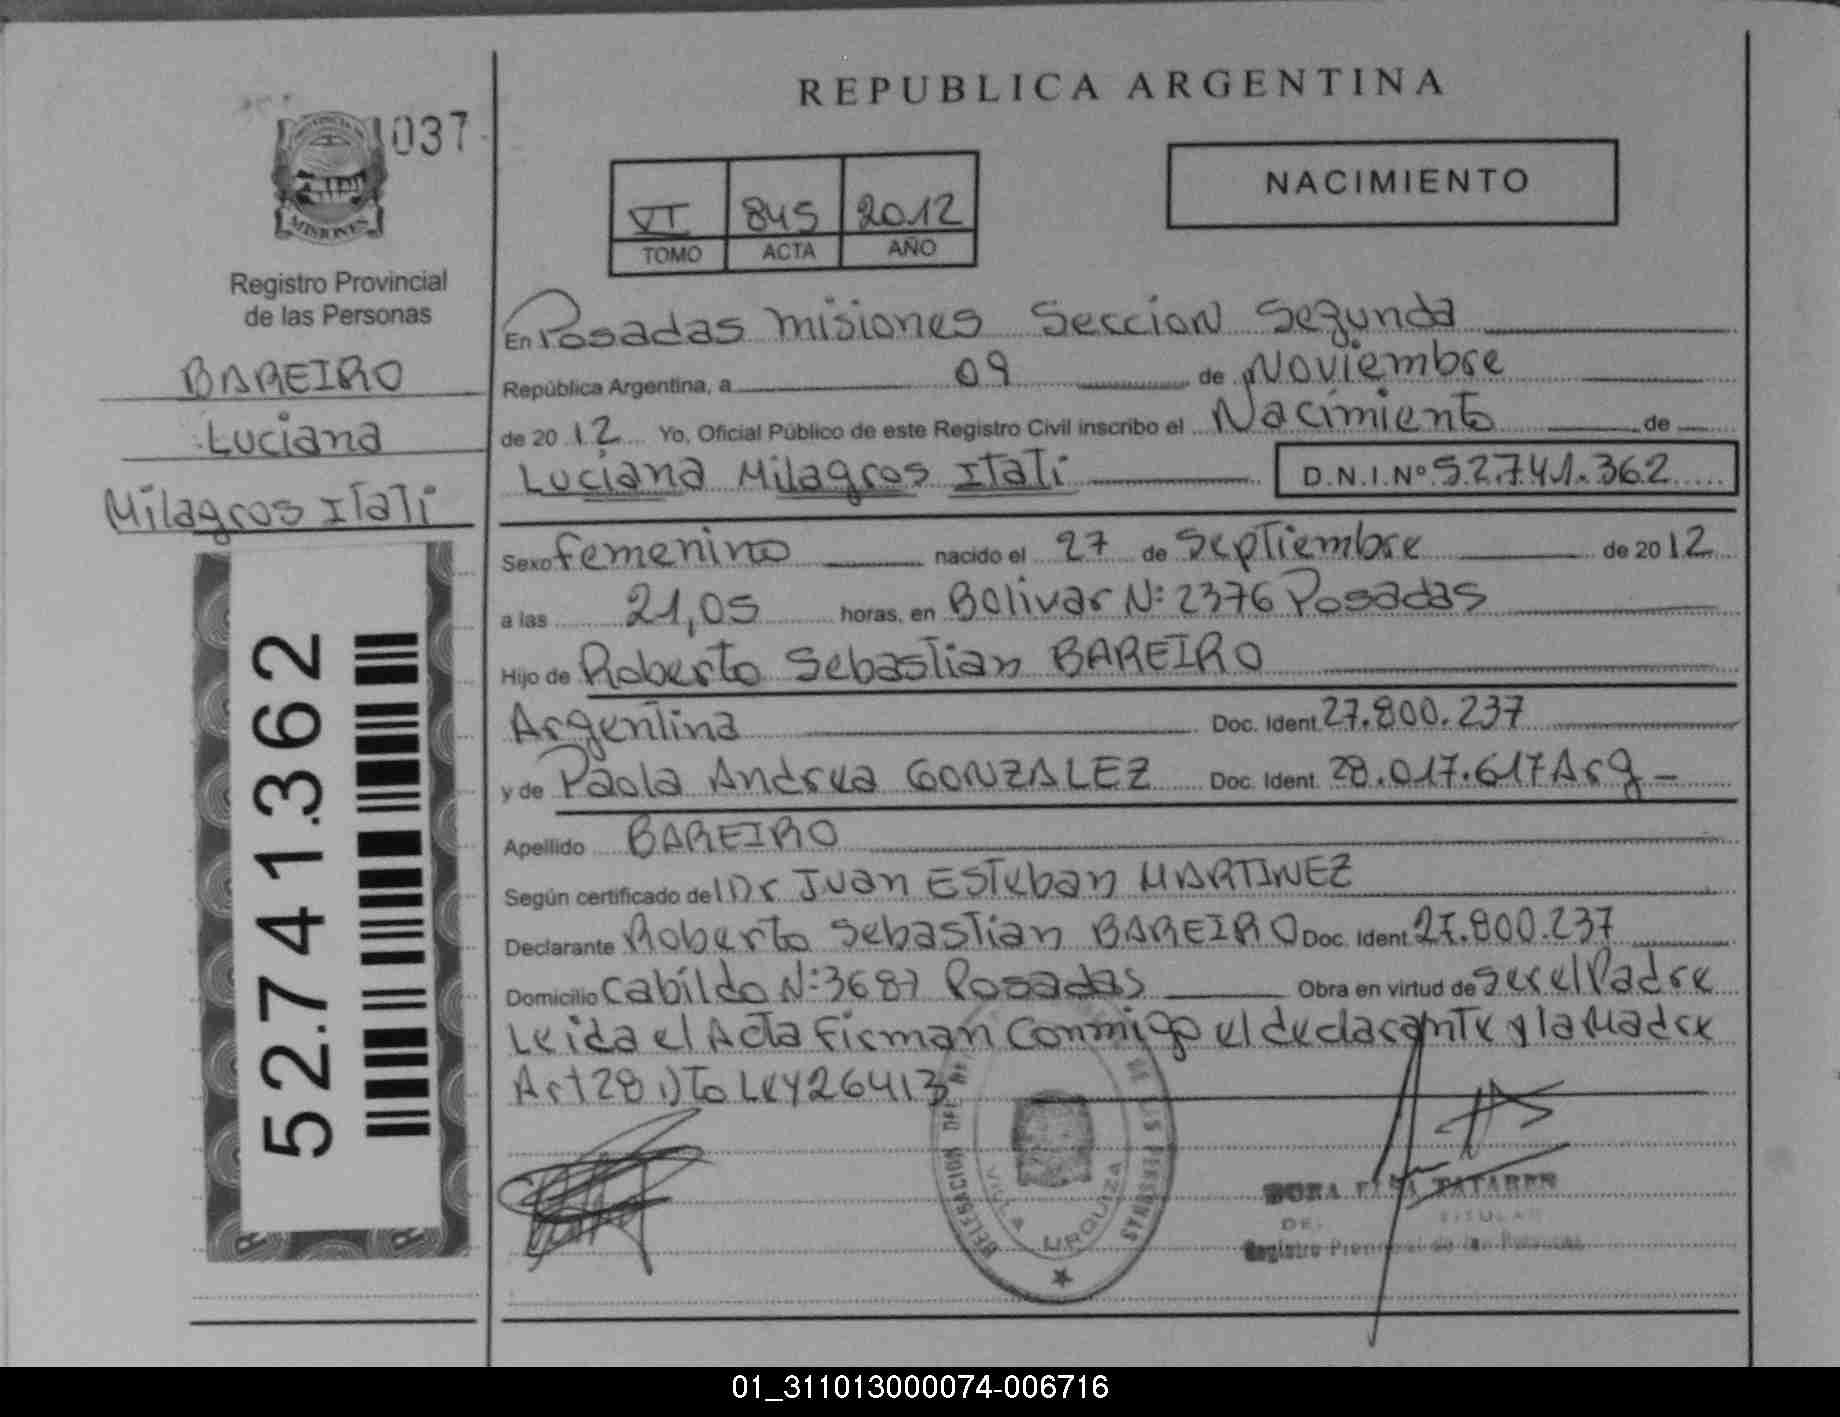 REPUBLICA ARGENTINA
1037
NACIMIENTO
VI 845 2012
TOMO ACTA AÑO
MISIONES
Registro Provincial
de las Personas
BAREIRO
Luciana
Milagros Itati
52.741.362
En Posadas Misiones Seccion Segunda
República Argentina, a 09 de Noviembre
de 2012 Yo, Oficial Público de este Registro Civil inscribo el Nacimiento de
Luciana Milagros Itati D.N.I.Nº 52.741.362
Sexo Femenino nacido el 27 de Septiembre de 2012
a las 21,05 horas, en Bolivar N: 2376 Posadas
Hijo de Roberto Sebastian BAREIRO
Argentina Doc. Ident. 27.800.237
y de Paola Andrea GONZALEZ Doc. Ident. 28.017.617 Arg
Apellido BAREIRO
Según certificado del Dr Juan Esteban MARTINEZ
Declarante Roberto Sebastian BAREIRO Doc. Ident. 27.800.237
Domicilio Cabildo N: 3687 Posadas Obra en virtud de ser el Padre
Leida el Acta Firman Conmigo el declarante y la Madre
Art 28 Ley 26413
DELEGACION DE LAS PERSONAS
VILLA URQUIZA
TITULAR
Registro Provincial de las Personas
01_311013000074-006716